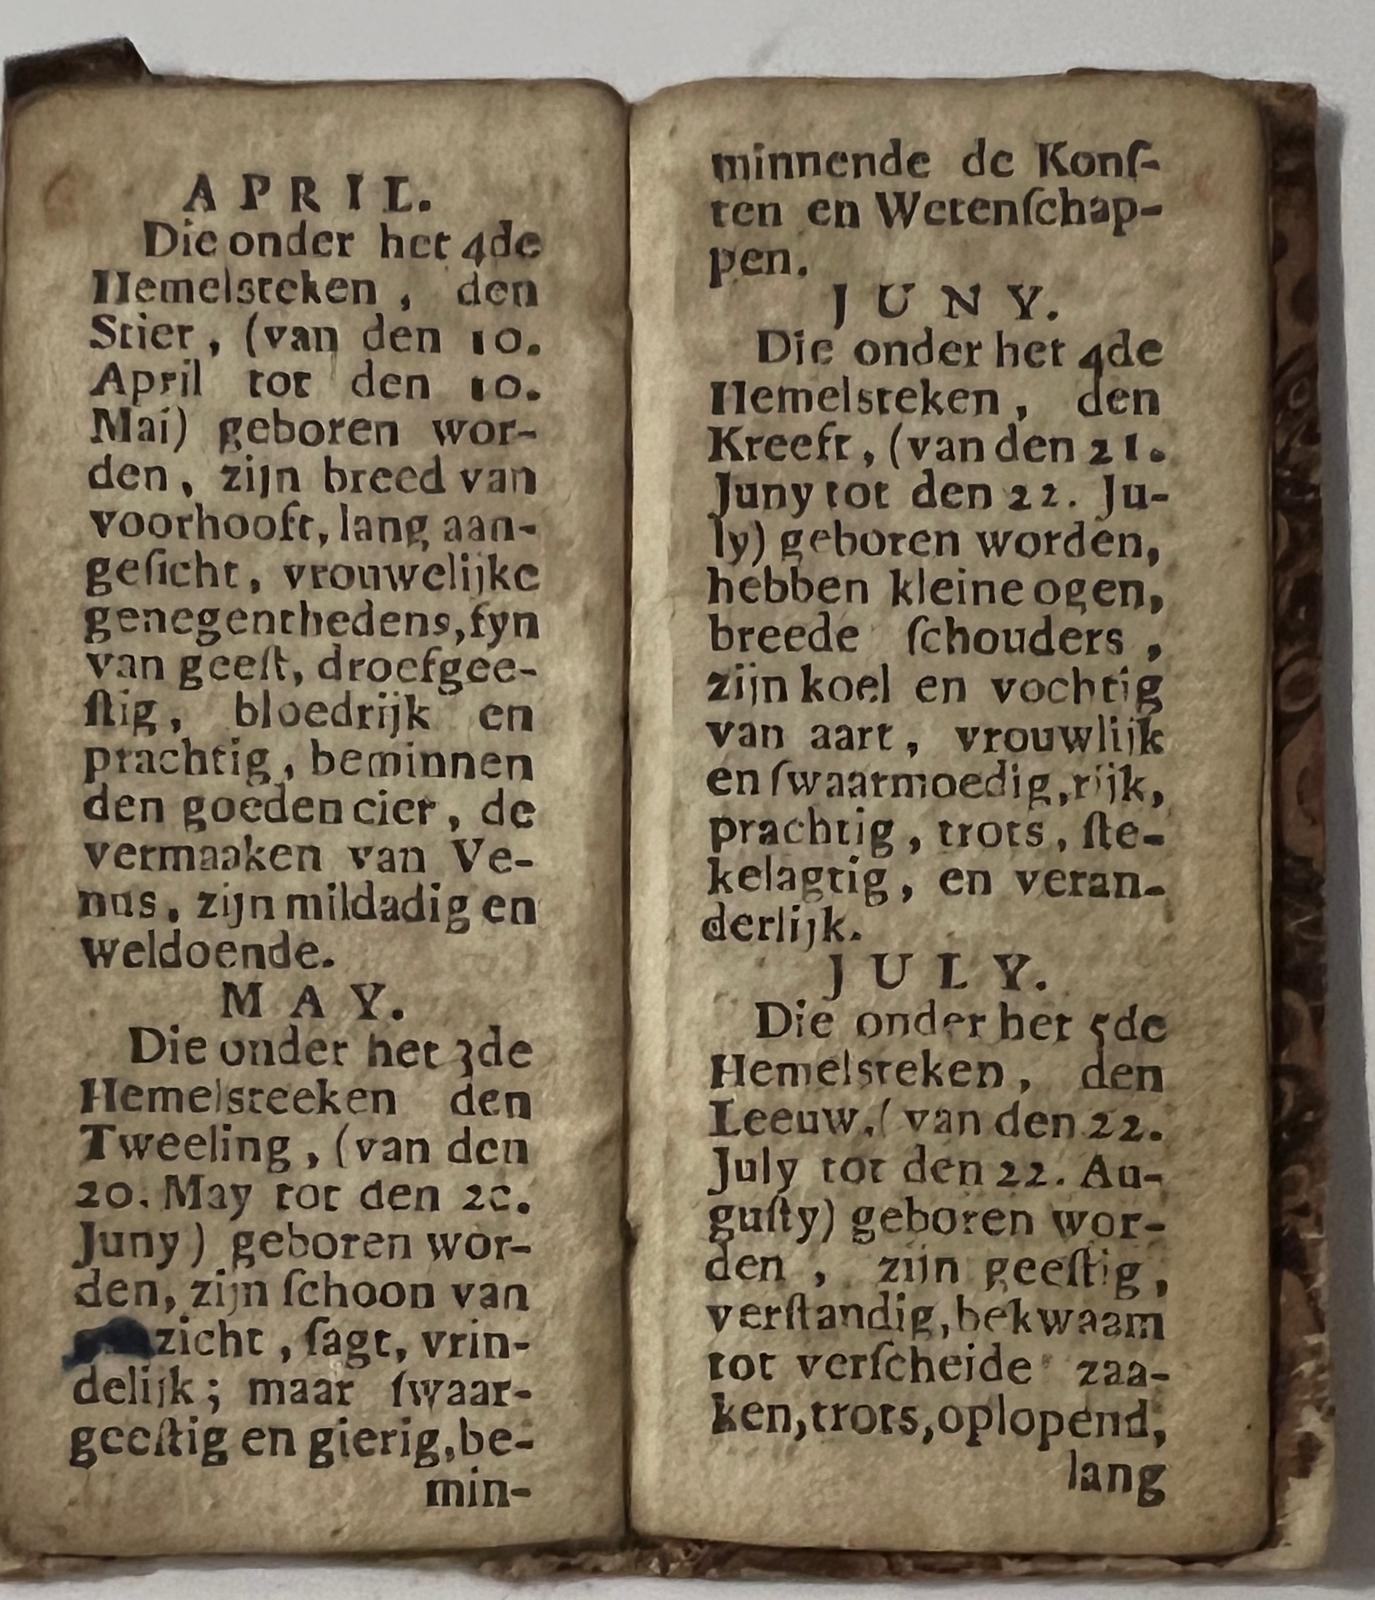 APRIL.
Die onder het 4de
Hemelsteken, den
Stier, (van den 10.
April tot den 10.
Mai) geboren wor-
den, zijn breed van
voorhooft, lang aan-
geſicht, vrouwelijke
genegenthedens, fyn
van geeſt, droefgee-
ſtig, bloedrijk en
prachtig, beminnen
den goeden cier, de
vermaaken van Ve-
nus, zijn mildadig en
weldoende.
MAY.
Die onder het 3de
Hemelsteeken den
Tweeling, (van den
20. May tot den 20.
Juny) geboren wor-
den, zijn ſchoon van
zicht, ſagt, vrin-
delijk; maar ſwaar-
geeſtig en gierig, be-
min-
minnende de Konſ-
ten en Wetenſchap-
pen.
JUNY.
Die onder het 4de
Hemelsteken, den
Kreeft, (van den 21.
Juny tot den 22. Ju-
ly) geboren worden,
hebben kleine ogen,
breede ſchouders,
zijn koel en vochtig
van aart, vrouwlijk
en ſwaarmoedig, rijk,
prachtig, trots, ſte-
kelagtig, en veran-
derlijk.
JULY.
Die onder het 5de
Hemelsteken, den
Leeuw, (van den 22.
July tot den 22. Au-
guſty) geboren wor-
den, zijn geeſtig,
verſtandig, bekwaam
tot verſcheide zaa-
ken, trots, oplopend,
lang